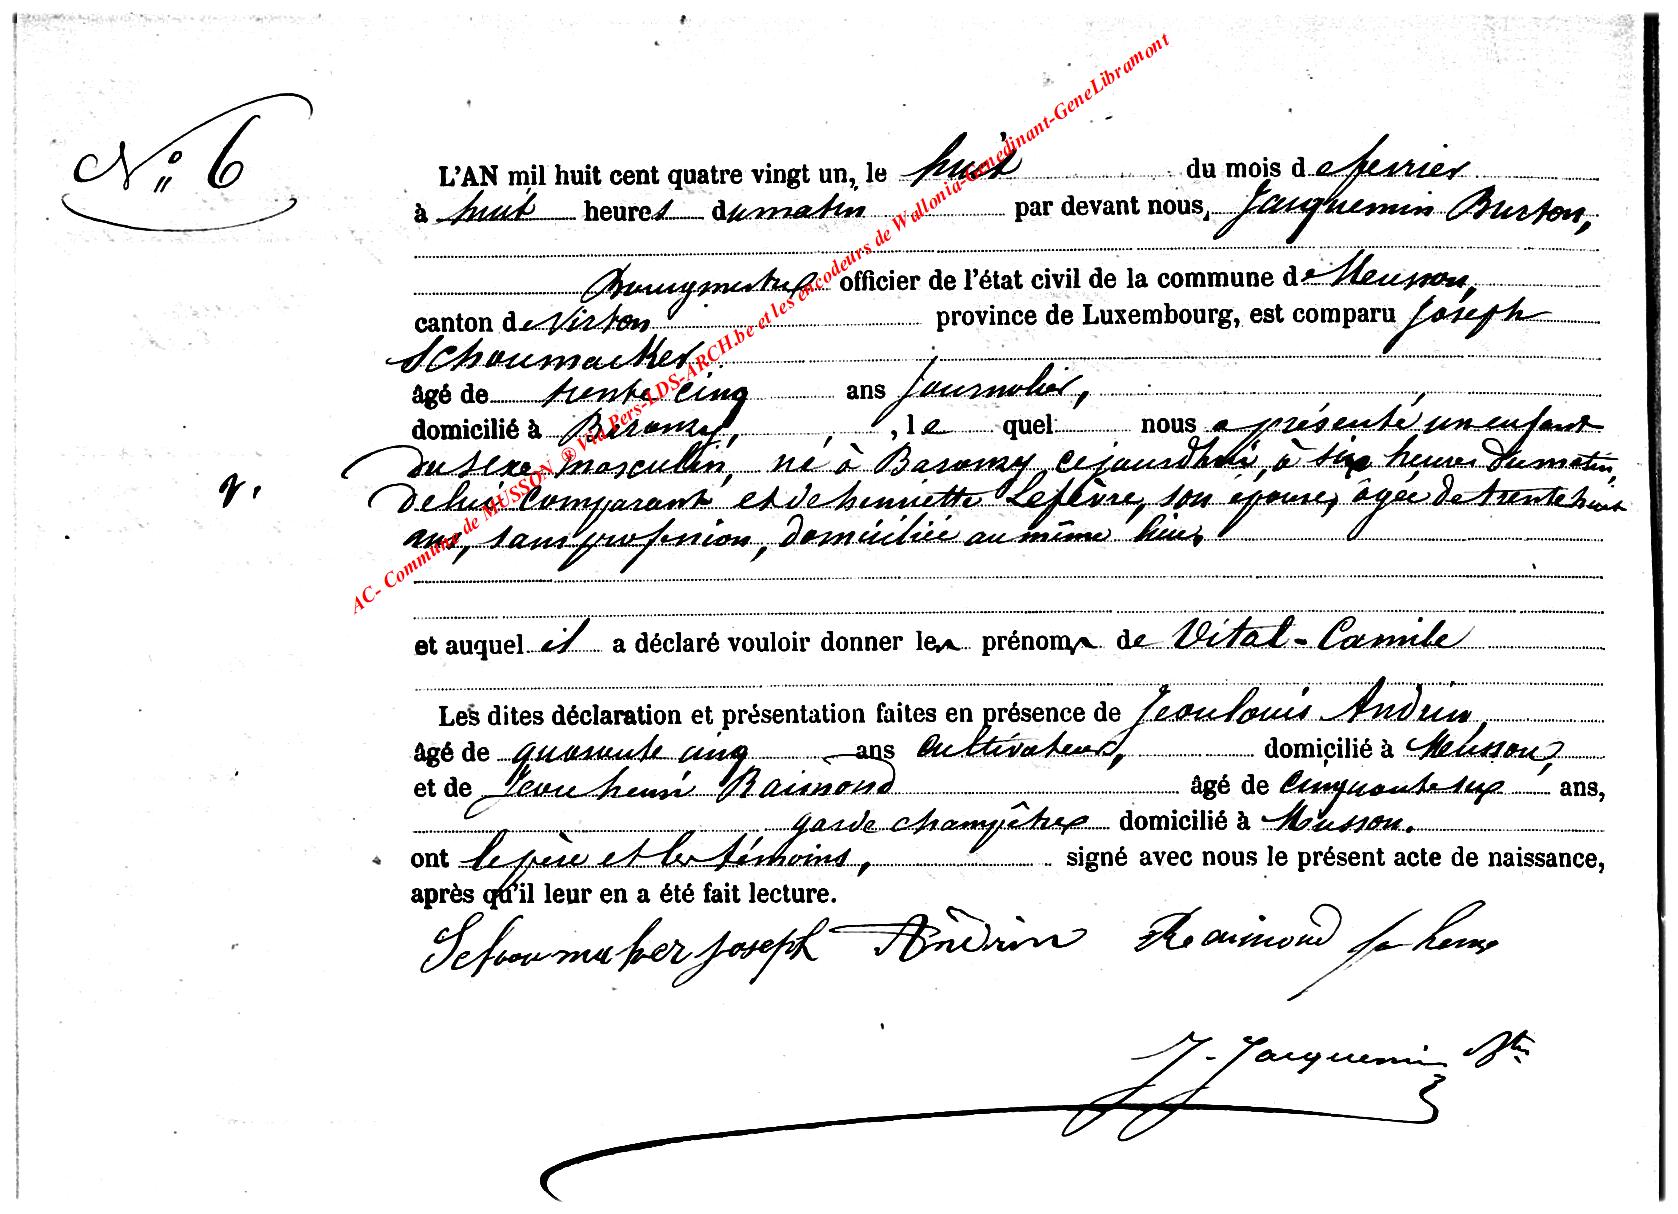 N° 6
L'AN mil huit cent quatre vingt un, le huit du mois de fevrier
à huit heures du matin par devant nous, Jacquemin Burton,
Bourgmestre officier de l'état civil de la commune de Musson,
canton de Virton province de Luxembourg, est comparu Joseph
Schoumacker
âgé de trente cinq ans journalier,
domicilié à Baranzy, , le quel nous a présenté un enfant
du sexe masculin, né à Baranzy cejourdhui, à six heures du matin,
de lui comparant et de henriette Lefèvre, son épouse, âgée de trente huit
ans, sans profession, domiciliée au même lieu,
et auquel il a déclaré vouloir donner les prénoms de Vital-Camile
Les dites déclaration et présentation faites en présence de Jean louis Andrin,
âgé de quarante cinq ans cultivateur, domicilié à Musson,
et de Jean henri Raimond âgé de cinquante six ans,
garde champêtre domicilié à Musson.
ont le père et les témoins, signé avec nous le présent acte de naissance,
après qu'il leur en a été fait lecture.
Schoumaker joseph Andrin Raimond
J. Jacquemin Btn
AC- Commune de MUSSON ® Via Pers-LDS-ARCH.be et les encodeurs de Wallonia-Genedinant-GeneLibramont